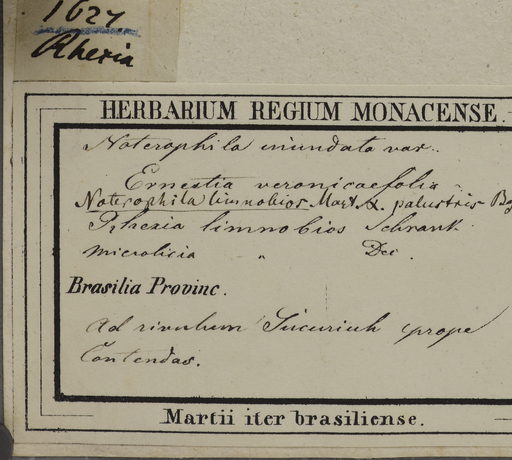 1627.
Rhexia
HERBARIUM REGIUM MONACENSE.
Noterophila inundata var.
Ernestia veronicaefolia
Noterophila limnobios Mart. α. palustris
Rhexia limnobios Schrank
Microlicia " Dec.
Brasilia Provinc.
Ad rivulum Sucuriuh prope
Contendas.
Martii iter brasiliense.